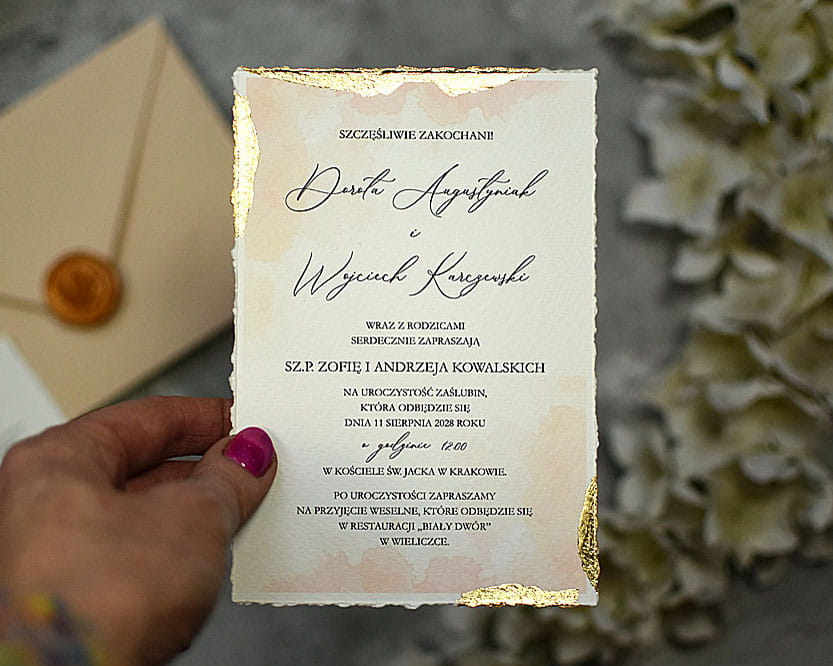 SZCZĘŚLIWIE ZAKOCHANI!
Dorota Augustyniak
i
Wojciech Karczewski
WRAZ Z RODZICAMI
SERDECZNIE ZAPRASZAJĄ
SZ.P. ZOFIĘ I ANDRZEJA KOWALSKICH
NA UROCZYSTOŚĆ ZAŚLUBIN,
KTÓRA ODBĘDZIE SIĘ
DNIA 11 SIERPNIA 2028 ROKU
o godzinie 12:00
W KOŚCIELE ŚW. JACKA W KRAKOWIE.
PO UROCZYSTOŚCI ZAPRASZAMY
NA PRZYJĘCIE WESELNE, KTÓRE ODBĘDZIE SIĘ
W RESTAURACJI „BIAŁY DWÓR"
W WIELICZCE.